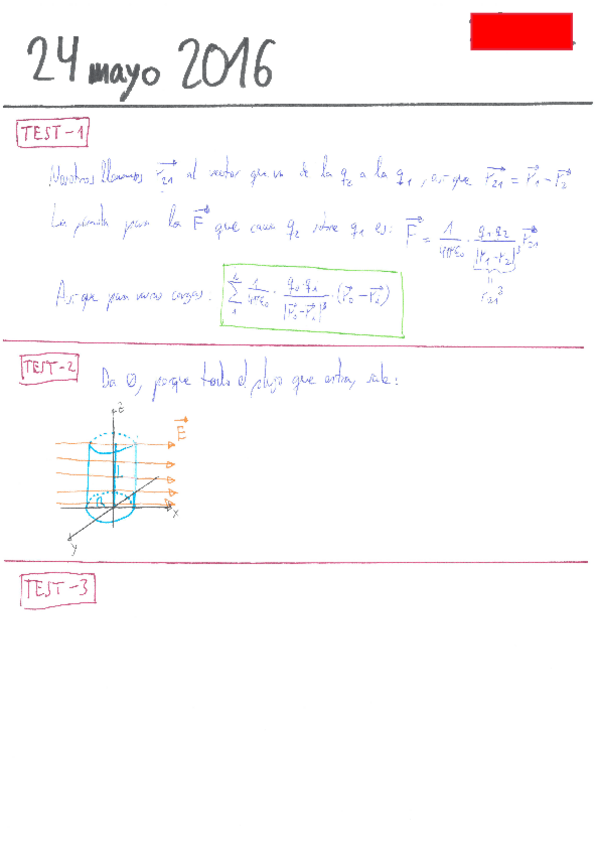 24 mayo 2016
TEST-1
Nosotros llamamos r₂₁ al vector que va de la q₂ a la q₁, así que r⃗₂₁ = r⃗₁ - r⃗₂
La fórmula para la F⃗ que causa q₂ sobre q₁ es: F⃗ = 1/4πε₀ · q₁q₂/|r₁-r₂|³ r⃗₂₁
r₂₁³
Así que para varias cargas:
TEST-2
Da 0, porque todo el flujo que entra, sale:
z
E⃗
L
R
x
y
TEST-3